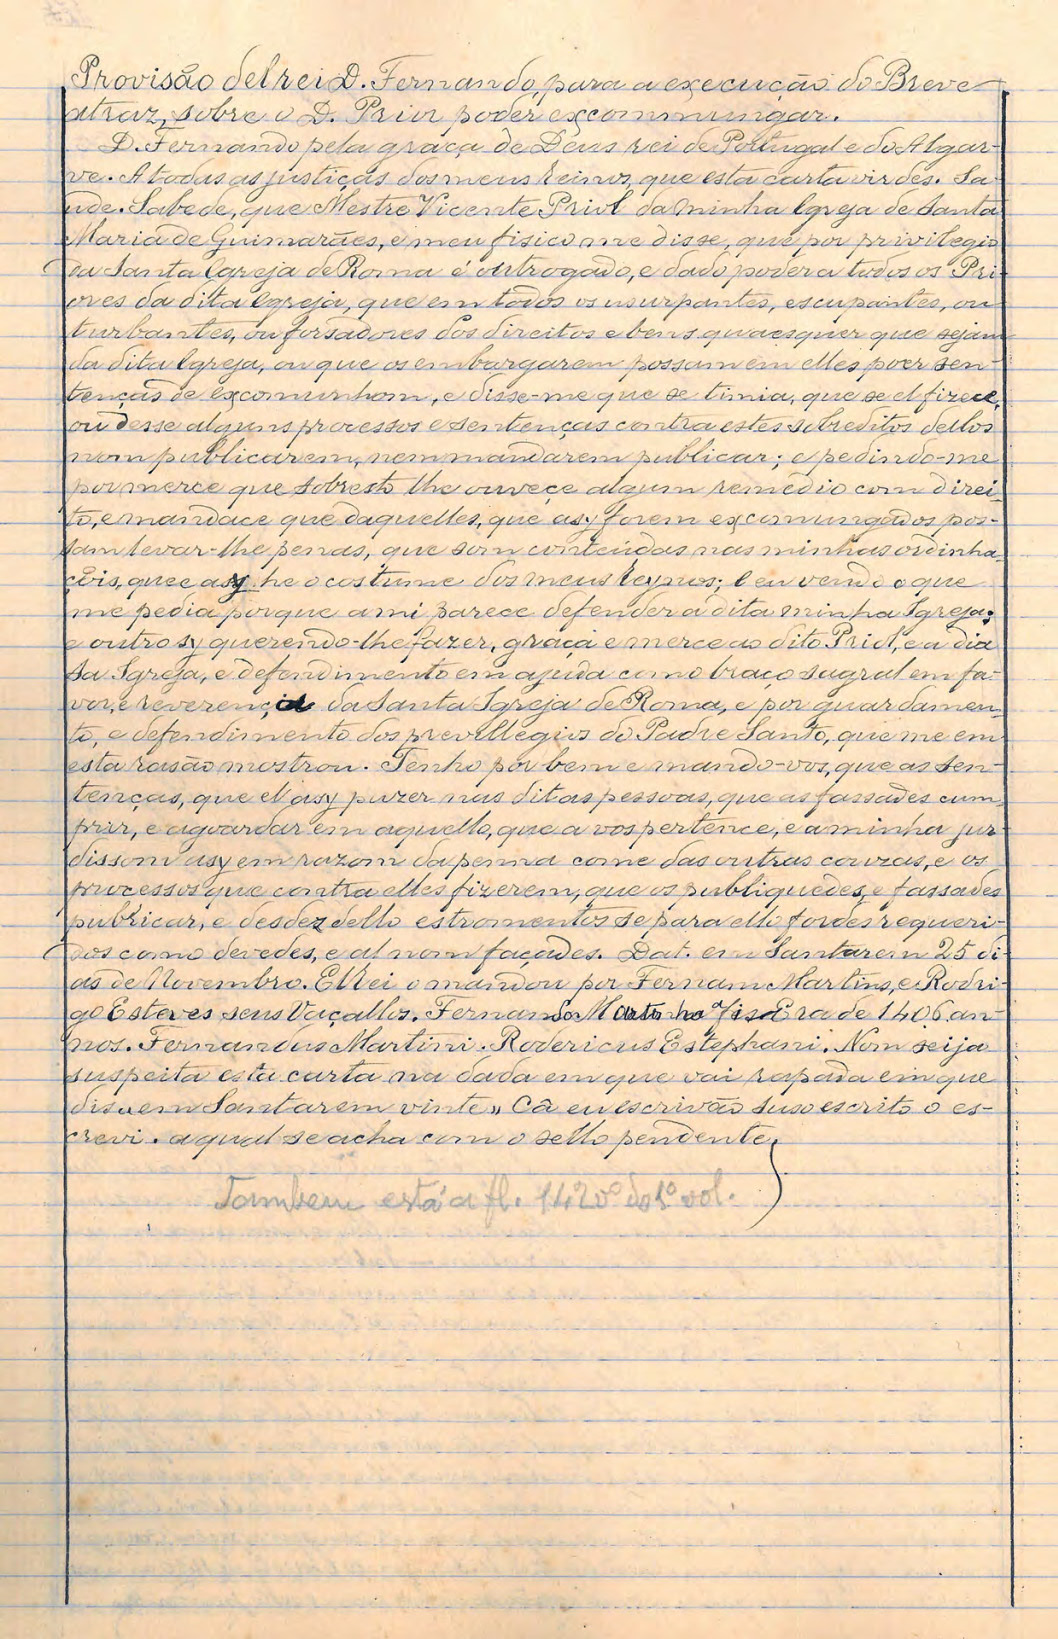 Provisão delrei D. Fernando, para a execução do Breve
atraz, sobre o D. Prior poder excommungar.
D. Fernando pela graça de Deus rei de Portugal e do Algar-
ve. A todas as justiças dos meus reinos, que esta carta virdes. Sa-
ude. Sabede, que Mestre Vicente Priol da minha Igreja de Santa
Maria de Guimarães, e meu fisico me disse, que por privilegio
da Santa Igreja de Roma é outrogado, e dado poder a todos os Pri-
ores da dita Igreja, que em todos os usurpantes, escupantes, ou
turbantes, ou forsadores dos direitos e bens quaesquer que sejam
da dita Igreja, ou que os embargarem possam em elles poer sen-
tenças de excomunhom, e disse-me que se timia, que se el fizece,
ou desse alguns processos e sentenças contra estes sobreditos dellos
nom publicarem, nem mandarem publicar; e pedindo-me
por merce que sobresto lhe ouveçe algum remedio com direi-
to, e mandace que daquelles, que asy forem excomungados pos-
sam levar-lhe penas, que som conteúdas nas minhas ordinha-
çõis, que e asy he o costume dos meus reynos; E eu vendo o que
me pedia porque a mi parece defender a dita minha Igreja;
e outro sy querendo-lhe fazer, graça e merce ao dito Priol, e a dia
sa Igreja, e defendimento em ajuda como braço sagral em fa-
vor, e reverença da Santa Igreja de Roma, e por guardamen-
to, e defendimento dos previllegios do Padre Santo, que me em
esta rasão mostrou. Tenho por bem e mando-vos, que as sen-
tenças, que el asy puzer nas ditas pessoas, que as fassades cum-
prir, e aguardar em aquello, que a vos pertence, e a minha jur
dissom asy em razom da penna come das outras couzas, e os
processos que contra elles fizerem, que os publiquedes, e fassades
publicar, e desdez dello estromentos se para ello fordes requeri-
dos como devedes, e al nom façades. Dat. em Santarem 25 di-
as de Novembro. ElRei o mandou por Fernam Martins, e Rodri-
go Esteves seus Vaçallos. Fernam Martinho fis Era de 1406 an-
nos. Fernandus Martini. Rodericus Estephani. Nom seija
suspeita esta carta na dada em que vai rapada em que
dis em Santarem vinte, Câ eu escrivão suso escrito o es-
crevi. a qual se acha com o sello pendente.
Tambem está a fl. 142vº do 1º vol.